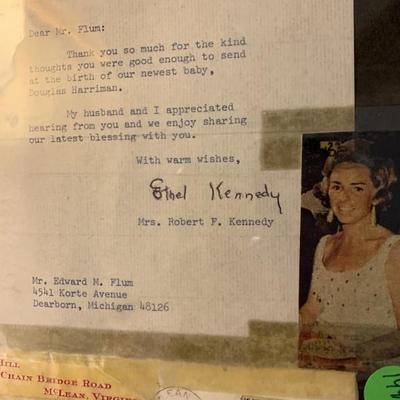 Dear Mr. Flum:
Thank you so much for the kind
thoughts you were good enough to send
at the birth of our newest baby,
Douglas Harriman.
My husband and I appreciated
hearing from you and we enjoy sharing
our latest blessing with you.
With warm wishes,
Ethel Kennedy
Mrs. Robert F. Kennedy
Mr. Edward M. Flum
4541 Korte Avenue
Dearborn, Michigan 48126
HILL
CHAIN BRIDGE ROAD
MCLEAN, VIRGIN
EAN